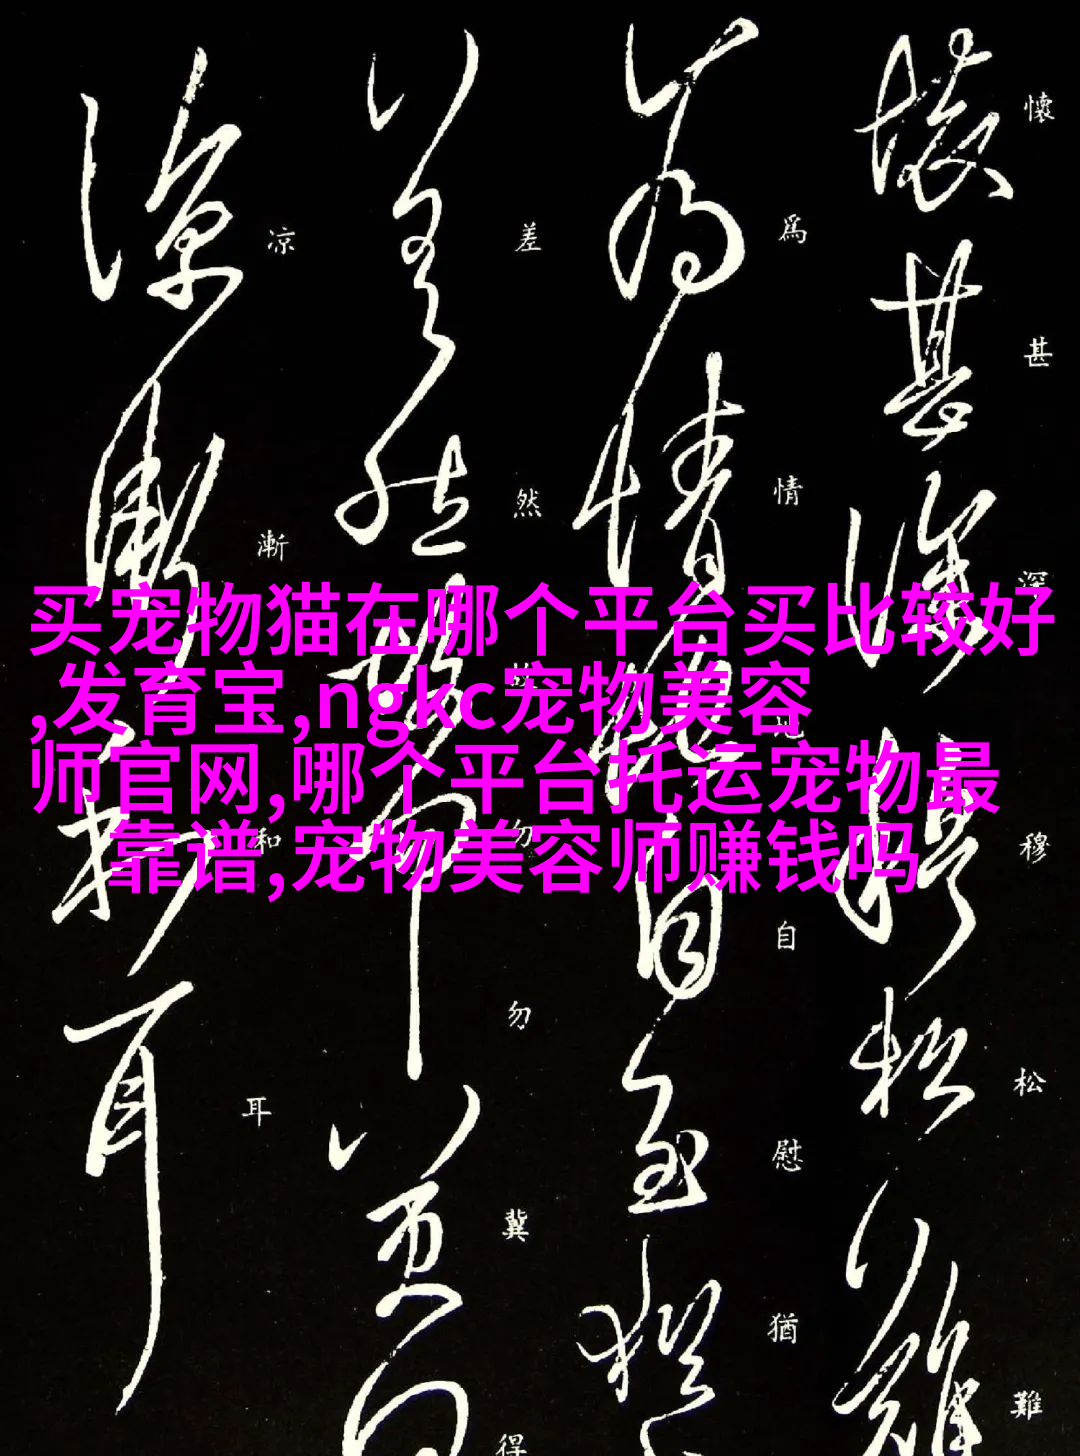 买宠物猫在哪个平台买比较好
,发育宝,ngkc宠物美容
师官网,哪个平台托运宠物最
靠谱,宠物美容师赚钱吗
懷甚深穆松難
爲情地自慰猶
差然勿勿冀得
凉漸和耳